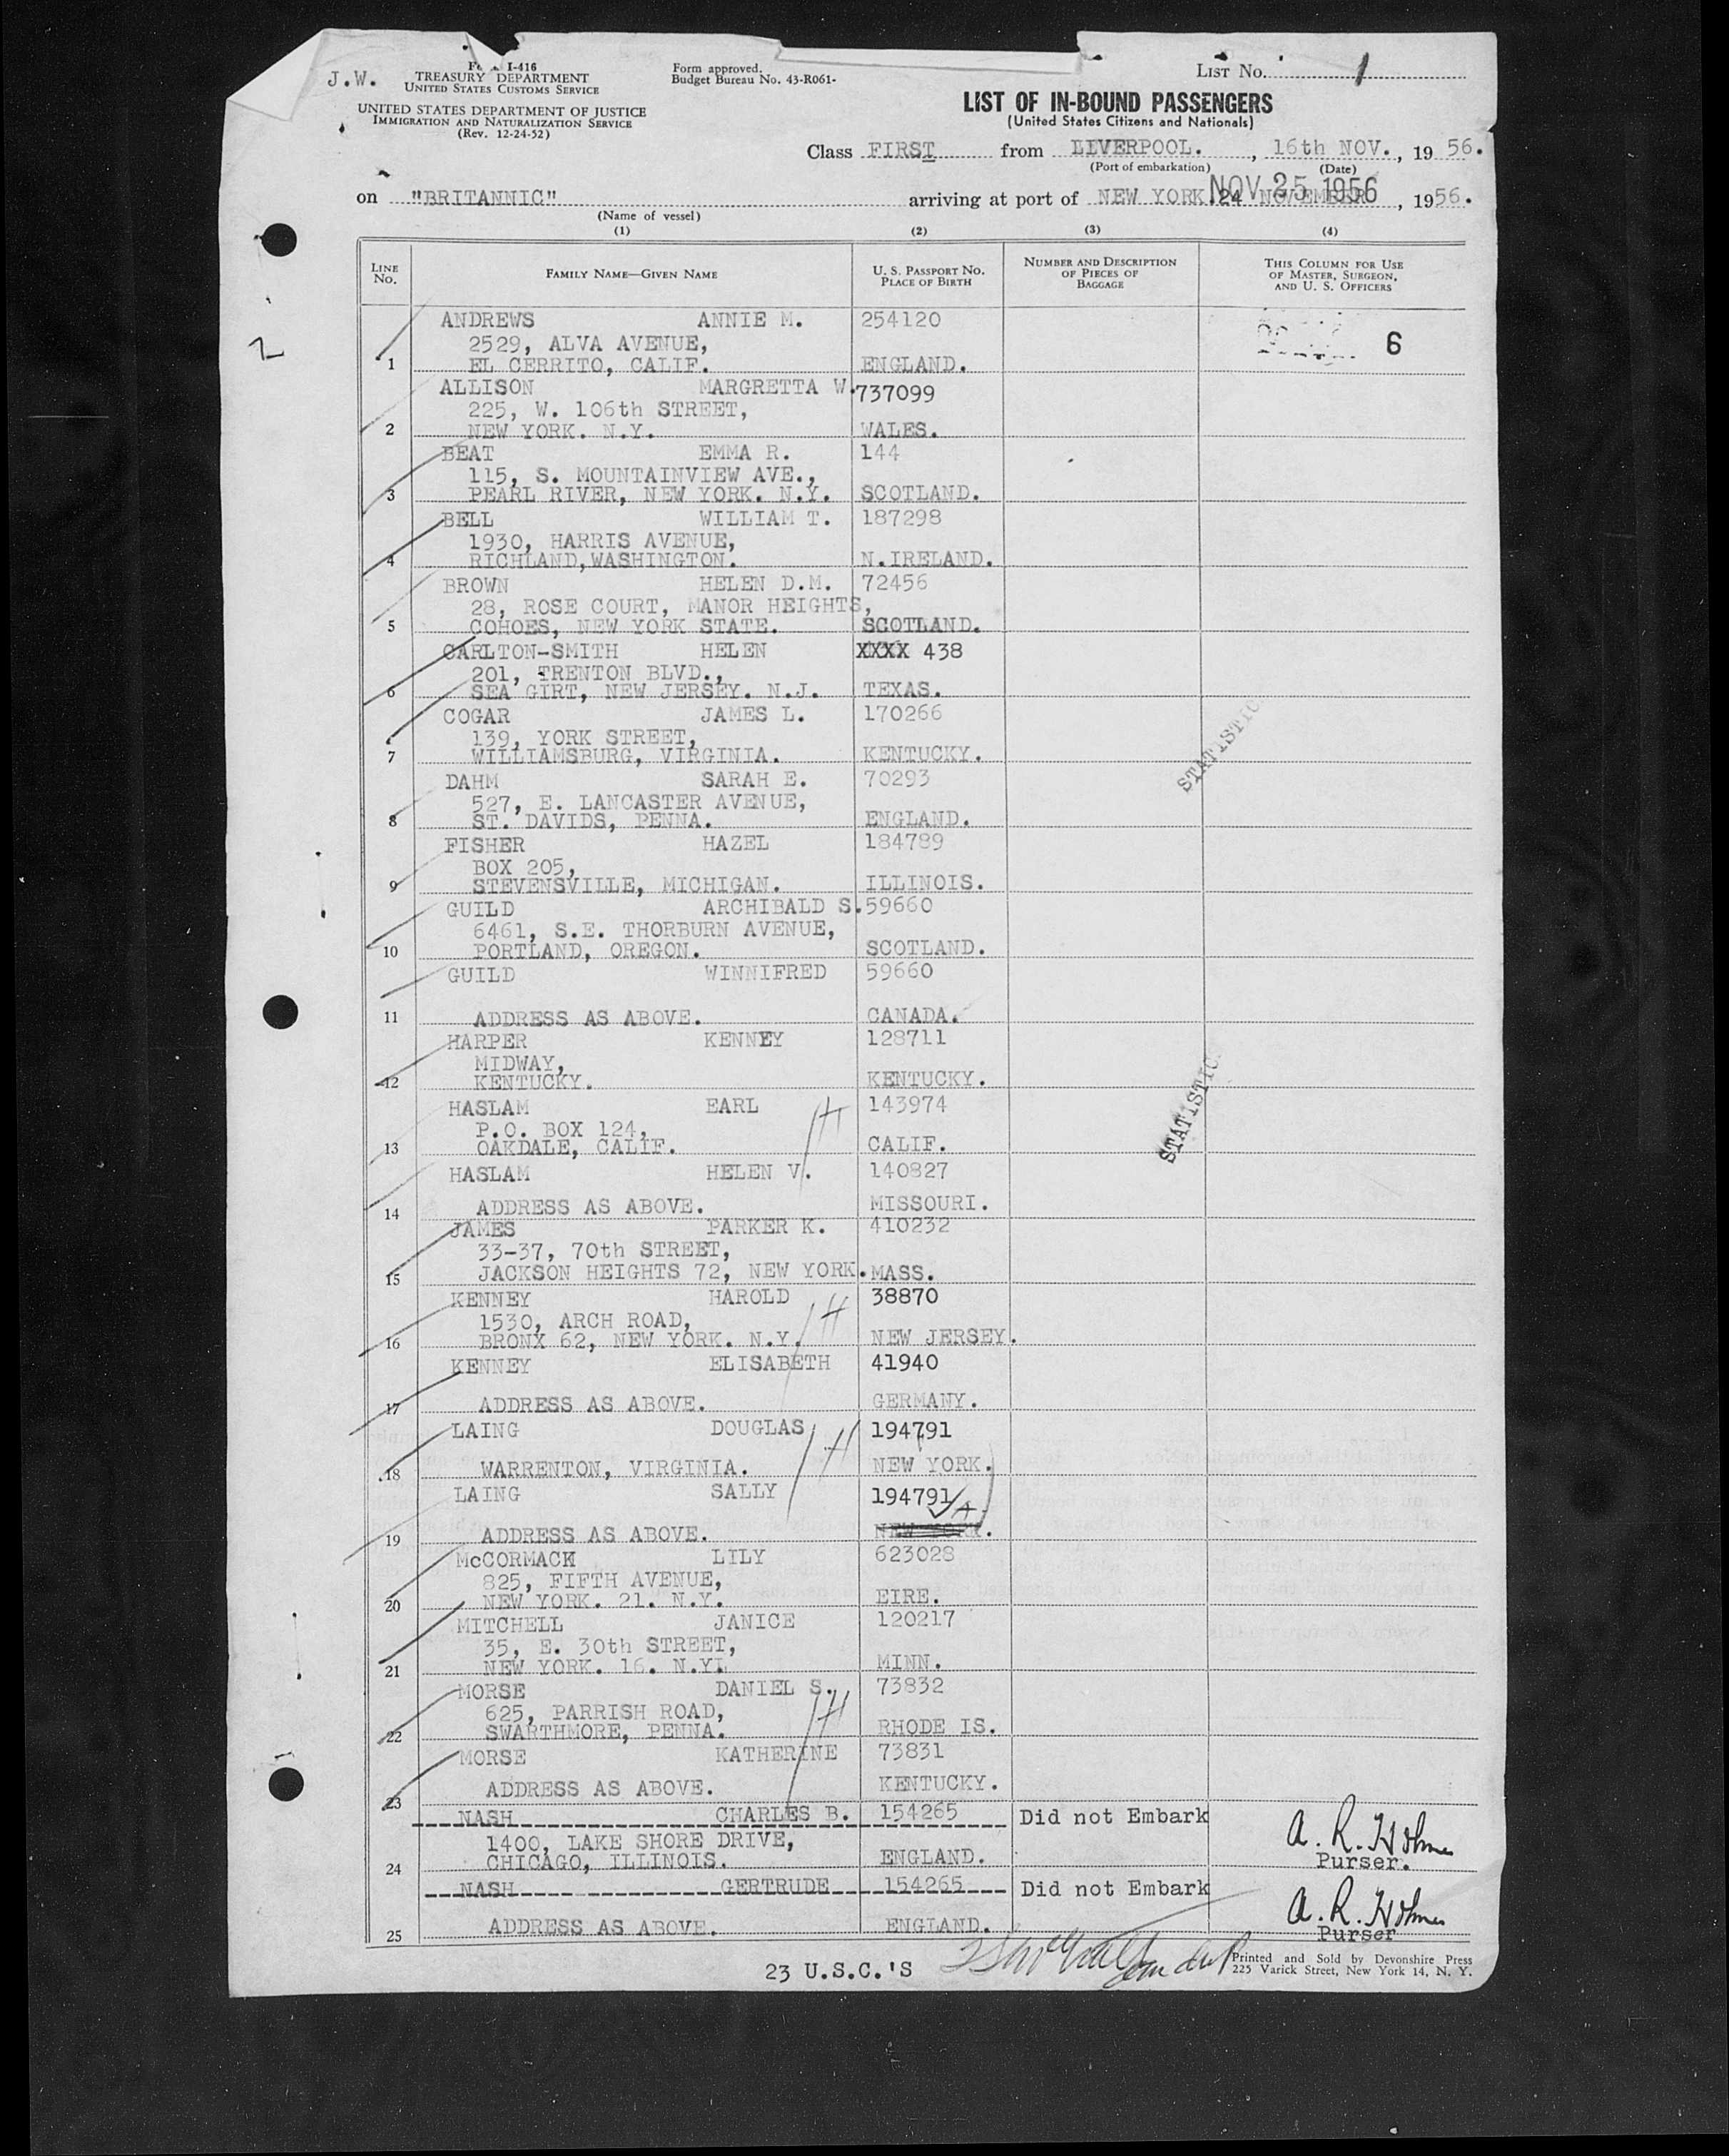 J.W.
I-416
TREASURY DEPARTMENT
UNITED STATES CUSTOMS SERVICE
UNITED STATES DEPARTMENT OF JUSTICE
IMMIGRATION AND NATURALIZATION SERVICE
(Rev. 12-24-52)
Form approved.
Budget Bureau No. 43-R061-
LIST No. 1
LIST OF IN-BOUND PASSENGERS
(United States Citizens and Nationals)
Class FIRST from LIVERPOOL. , 16th NOV. , 19 56.
(Port of embarkation) (Date)
NOV 25 1956
on "BRITANNIC" arriving at port of NEW YORK.24 NOVEMBER , 1956.
(Name of vessel)
(1) (2) (3) (4)
LINE No. FAMILY NAME—GIVEN NAME U. S. PASSPORT No. PLACE OF BIRTH NUMBER AND DESCRIPTION OF PIECES OF BAGGAGE THIS COLUMN FOR USE OF MASTER, SURGEON, AND U. S. OFFICERS
2
ANDREWS ANNIE M. 254120
6
2529, ALVA AVENUE,
1 EL CERRITO, CALIF. ENGLAND.
ALLISON MARGRETTA W. 737099
225, W. 106th STREET,
2 NEW YORK. N.Y. WALES.
BEAT EMMA R. 144
115, S. MOUNTAINVIEW AVE.,
3 PEARL RIVER, NEW YORK. N.Y. SCOTLAND.
BELL WILLIAM T. 187298
1930, HARRIS AVENUE,
4 RICHLAND,WASHINGTON. N.IRELAND.
BROWN HELEN D.M. 72456
28, ROSE COURT, MANOR HEIGHTS,
5 COHOES, NEW YORK STATE. SCOTLAND.
CARLTON-SMITH HELEN XXXX 438
201, TRENTON BLVD.,
6 SEA GIRT, NEW JERSEY. N.J. TEXAS.
COGAR JAMES L. 170266
139, YORK STREET,
7 WILLIAMSBURG, VIRGINIA. KENTUCKY.
STATISTIC
DAHM SARAH E. 70293
527, E. LANCASTER AVENUE,
8 ST. DAVIDS, PENNA. ENGLAND.
FISHER HAZEL 184789
BOX 205,
9 STEVENSVILLE, MICHIGAN. ILLINOIS.
GUILD ARCHIBALD S. 59660
6461, S.E. THORBURN AVENUE,
10 PORTLAND, OREGON. SCOTLAND.
GUILD WINNIFRED 59660
11 ADDRESS AS ABOVE. CANADA.
HARPER KENNEY 128711
MIDWAY,
12 KENTUCKY. KENTUCKY.
STATISTIC
HASLAM EARL H 143974
P.O. BOX 124,
13 OAKDALE, CALIF. CALIF.
HASLAM HELEN V. 140827
14 ADDRESS AS ABOVE. MISSOURI.
JAMES PARKER K. 410232
33-37, 70th STREET,
15 JACKSON HEIGHTS 72, NEW YORK. MASS.
KENNEY HAROLD H 38870
1530, ARCH ROAD,
16 BRONX 62, NEW YORK. N.Y. NEW JERSEY.
KENNEY ELISABETH 41940
17 ADDRESS AS ABOVE. GERMANY.
LAING DOUGLAS H 194791
18 WARRENTON, VIRGINIA. NEW YORK.
LAING SALLY 194791
19 ADDRESS AS ABOVE. NEW YORK.
McCORMACK LILY 623028
825, FIFTH AVENUE,
20 NEW YORK. 21. N.Y. EIRE.
MITCHELL JANICE 120217
35, E. 30th STREET,
21 NEW YORK. 16. N.Y. MINN.
MORSE DANIEL S. H 73832
625, PARRISH ROAD,
22 SWARTHMORE, PENNA. RHODE IS.
MORSE KATHERINE 73831
23 ADDRESS AS ABOVE. KENTUCKY.
NASH CHARLES B. 154265 Did not Embark
1400, LAKE SHORE DRIVE, A. R. Holmes
24 CHICAGO, ILLINOIS. ENGLAND. Purser.
NASH GERTRUDE 154265 Did not Embark
A. R. Holmes
25 ADDRESS AS ABOVE. ENGLAND. Purser
23 U.S.C.'S
Printed and Sold by Devonshire Press
225 Varick Street, New York 14, N. Y.